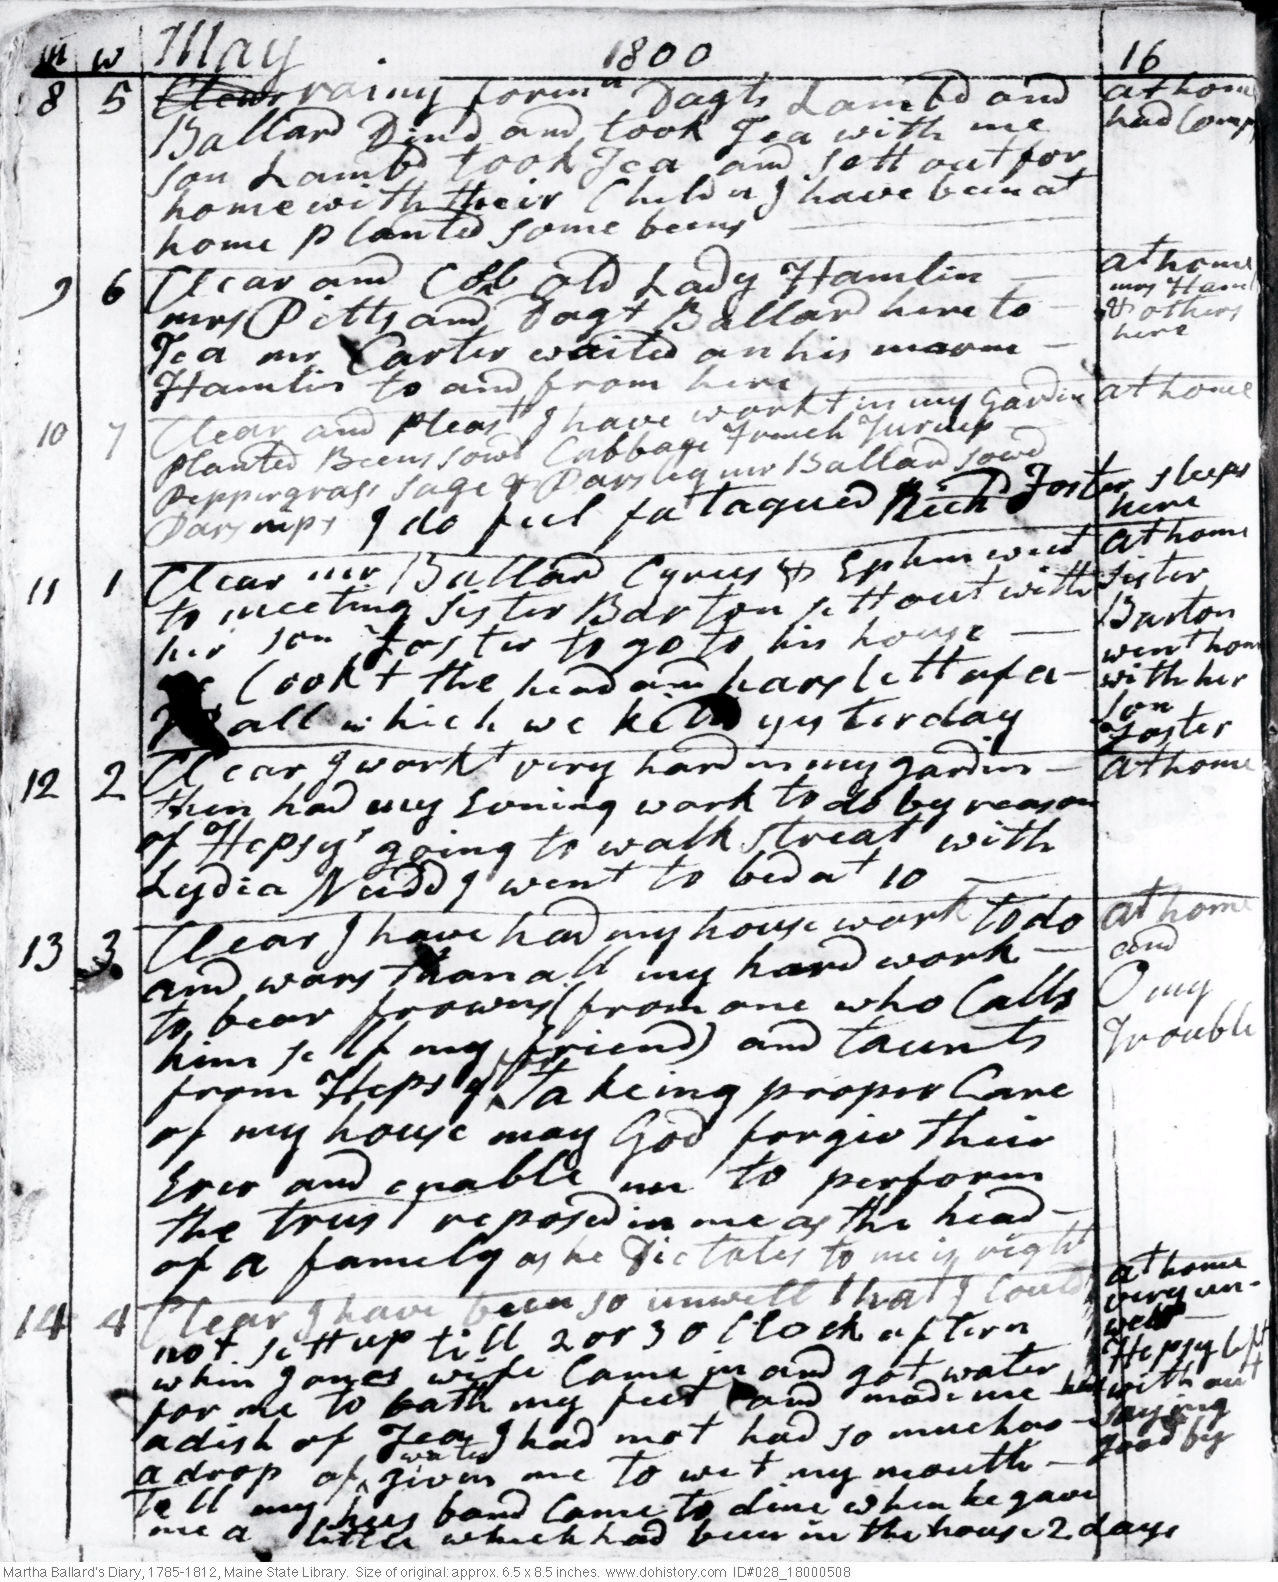 m w May 1800 16
8 5 Clear rainy formn Dagts Lambd and at home
Ballard Dind and took Tea with me had Comp
son Lambd took Tea and sett out for
home with their Childn I have been at
home planted some beens
9 6 Clear and Cool old Lady Hamlin at home
mrs Pitts and Dagt Ballard here to mrs Haml
Tea mr Carter waited on his marm & others
Hamlin to and from here here
10 7 Clear and Pleast I have workt in my Gardin at home
planted Beens sowd Cabbage French Turnep
peppergrass sage & Parsley mr Ballard sowd
Parsnips I do feel fatagued Rich Foster sleeps
here
11 1 Clear mr Ballard Cyrus & Ephm went at home
to meeting Sister Barton sett out with Sister
her son Foster to go to his house Barton
we Cookt the head and harslett of a went hom
Calf which we kild yesterday with her
son
Foster
12 2 Clear I workt very hard in my gardin at home
then had my Evning work to do by reason
of Hepsy's going to walk streat with
Lydia Nudd I went to bed at 10
13 3 Clear I have had my house work to do at home
and wors than all my hard work and
to bear frowns (from one who Calls O my
him self my friend) and taunts Trouble
from Hepsy for Takeing proper Care
of my house may God forgiv their
Erer and enable me to perform
the trust reposed in me as the head
of a famely as he Dictates to me is right
14 4 Clear I have been so unwell that I Could at home
not sett up till 2 or 3 O Clock aftern very un-
when Jones wife Came in and got water well
for me to bath my feet and made me Hepsy left
a dish of Tea I had not had so much as with out
a drop of water givin me to wet my mouth saying
till my husband Came to dine when he gave good by
me a little which had been in the house 2 days
Martha Ballard's Diary, 1785-1812, Maine State Library. Size of original: approx. 6.5 x 8.5 inches. www.dohistory.com ID#028_18000508